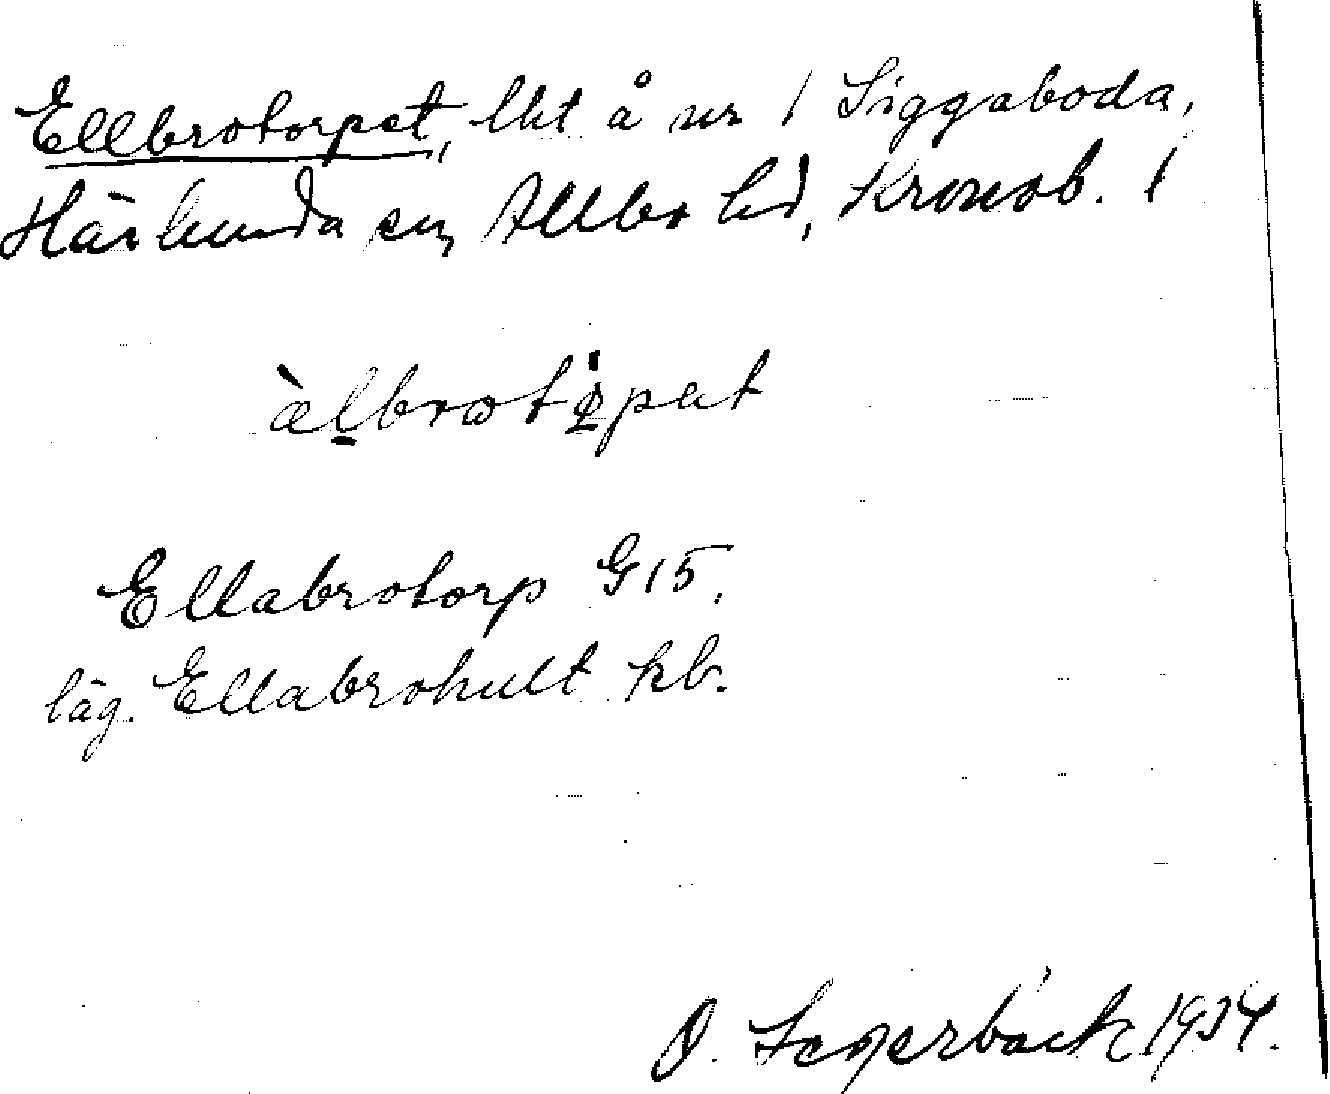 Ellbrotorpet, lht å nr 1 Siggaboda,
Härlunda sn, Allbo hd, Kronob. l
æ̀lbrotǫpat
Ellabrotorp G 15.
läg. Ellabrohult kb.
O. Segerbäck 1934.